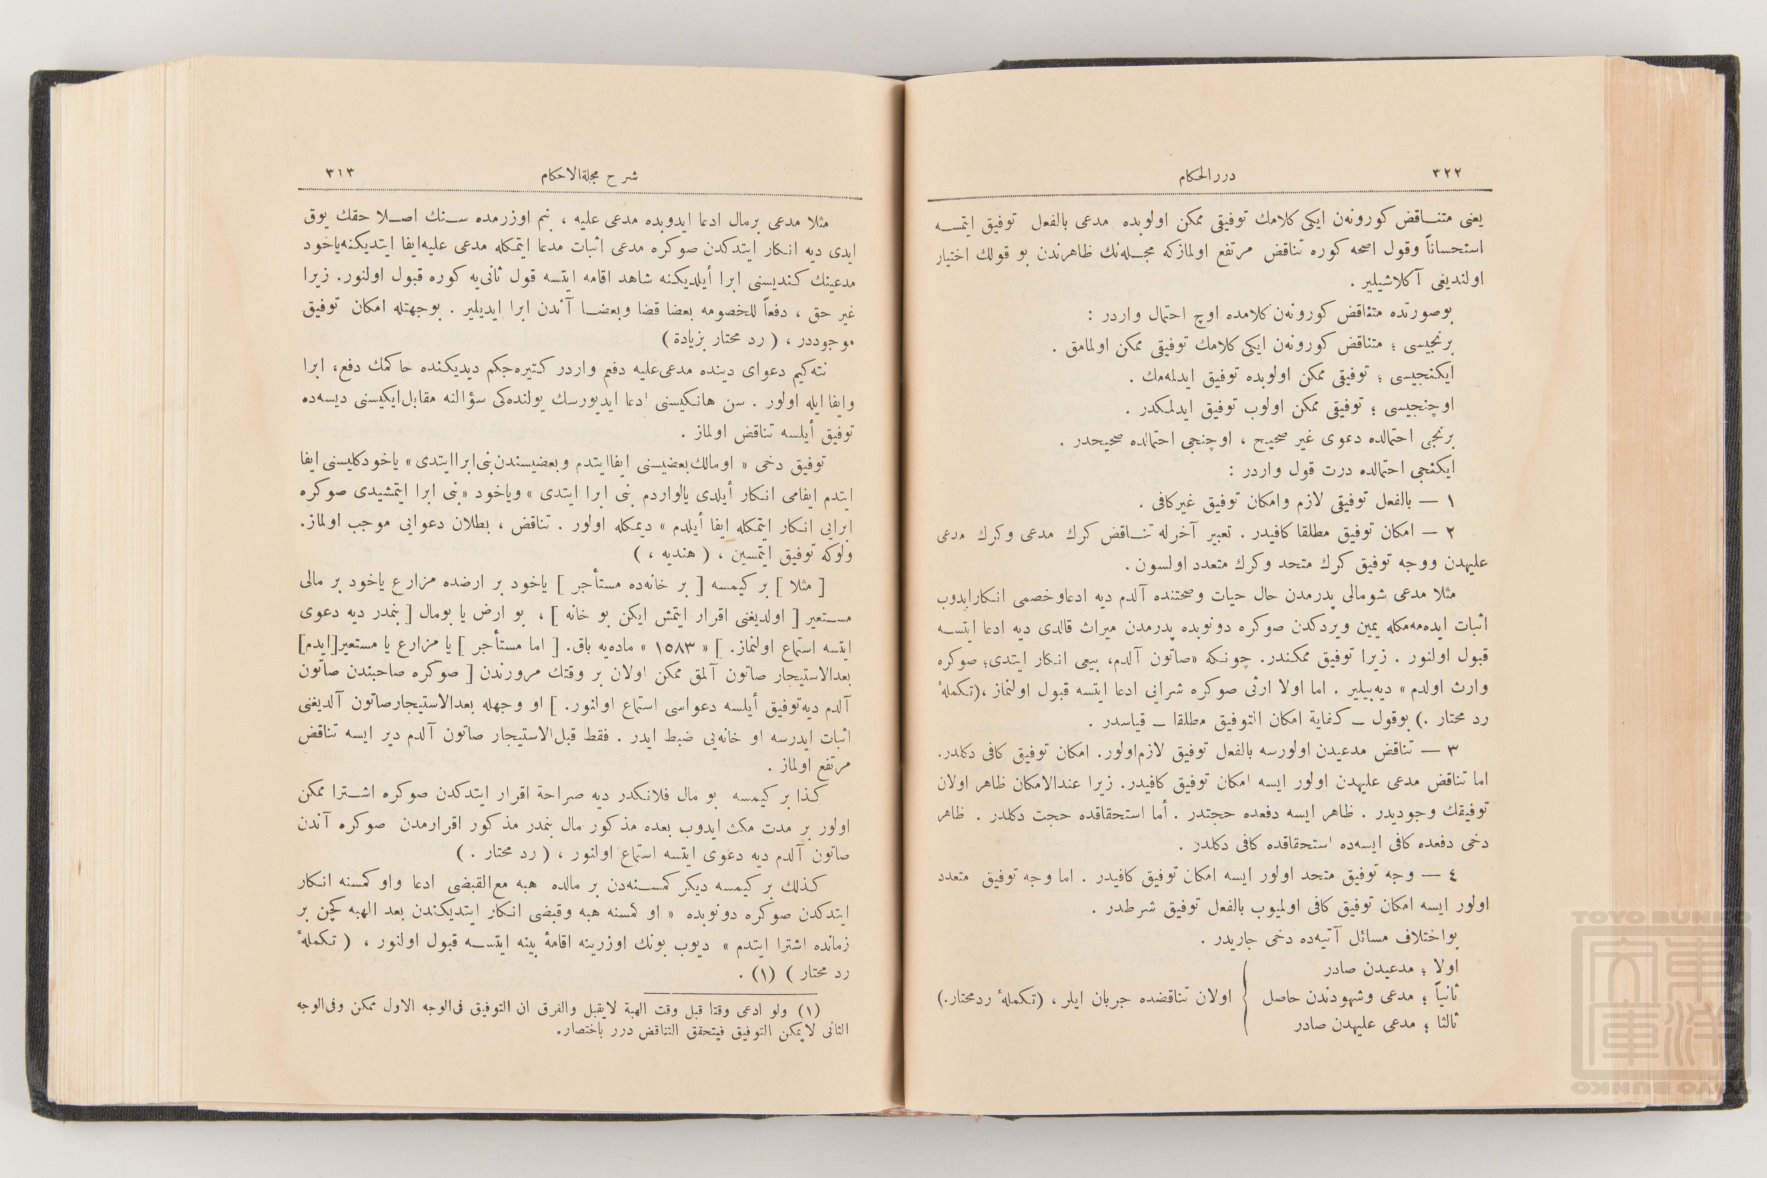 ٣٢٢
دررالحكام
يعنى متناقض كورونەن ايكى كلامك توفيقى ممكن اولوبده مدعى بالفعل توفيق ايتمسه
استحساناً وقول اصحه كوره تناقض مرتفع اولمازكه مجله‌نك ظاهرندن بو قولك اختيار
اولنديغى آكلاشيلير .
بوصورتده متناقض كورونەن كلامده اوچ احتمال واردر :
برنجيسى ؛ متناقض كورونەن ايكى كلامك توفيقى ممكن اولمامق .
ايكنجيسى ؛ توفيقى ممكن اولوبده توفيق ايدلمه‌مك .
اوچنجيسى ؛ توفيقى ممكن اولوب توفيق ايدلمكدر .
برنجى احتمالده دعوى غير صحيح ، اوچنجى احتمالده صحيحدر .
ايكنجى احتمالده درت قول واردر :
١ — بالفعل توفيقى لازم وامكان توفيق غيركافى .
٢ — امكان توفيق مطلقا كافيدر . تعبير آخرله تناقض كرك مدعى وكرك مدعى
عليهدن ووجه توفيق كرك متحد وكرك متعدد اولسون .
مثلا مدعى شومالى پدرمدن حال حيات وصحتنده آلدم ديه ادعاوخصمى انكارايدوب
اثبات ايده‌مه‌مكله يمين ويردكدن صوكره دونوبده پدرمدن ميراث قالدى ديه ادعا ايتسه
قبول اولنور . زيرا توفيق ممكندر. چونكه «صاتون آلدم، بيعى انكار ايتدى؛ صوكره
وارث اولدم» ديه‌بيلير . اما اولا ارثى صوكره شرايى ادعا ايتسه قبول اولنماز ،(تكملهٔ
رد محتار .) بوقول — كفاية امكان التوفيق مطلقا — قياسدر .
٣ — تناقض مدعيدن اولورسه بالفعل توفيق لازم‌اولور. امكان توفيق كافى دكلدر.
اما تناقض مدعى عليهدن اولور ايسه امكان توفيق كافيدر. زيرا عندالامكان ظاهر اولان
توفيقك وجوديدر . ظاهر ايسه دفعده حجتدر . أما استحقاقده حجت دكلدر . ظاهر
دخى دفعده كافى ايسه‌ده استحقاقده كافى دكلدر .
٤ — وجه توفيق متحد اولور ايسه امكان توفيق كافيدر . اما وجه توفيق متعدد
اولور ايسه امكان توفيق كافى اولميوب بالفعل توفيق شرطدر .
بواختلاف مسائل آتيه‌ده دخى جاريدر .
اولا ؛ مدعيدن صادر
ثانياً ؛ مدعى وشهودندن حاصل } اولان تناقضده جريان ايلر ، (تكملهٔ ردمحتار.)
ثالثا ؛ مدعى عليهدن صادر
شرح مجلةالاحكام
٣١٣
مثلا مدعى برمال ادعا ايدوبده مدعى عليه ، بنم اوزرمده سنك اصلا حقك يوق
ايدى ديه انكار ايتدكدن صوكره مدعى اثبات مدعا ايتمكله مدعى عليه‌ايفا ايتديكنه‌ياخود
مدعينك كنديسنى ابرا أيلديكنه شاهد اقامه ايتسه قول ثانى‌يه كوره قبول اولنور. زيرا
غير حق ، دفعاً للخصومه بعضا قضا وبعضا آندن ابرا ايديلير . بوجهتله امكان توفيق
موجوددر ، ( رد محتار بزيادة )
نته‌كيم دعواى دينده مدعى‌عليه دفعم واردر كتيره‌جكم ديديكنده حاكمك دفع، ابرا
وايفا ايله اولور . سن هانكيسنى ادعا ايديورسك يولنده‌كى سؤالنه مقابل‌ايكيسنى ديسه‌ده
توفيق أيلسه تناقض اولماز .
توفيق دخى « اومالك‌بعضيسنى ايفاايتدم وبعضيسندن‌بنى‌ابراايتدى » ياخودكليسنى ايفا
ايتدم ايفامى انكار أيلدى يالواردم بنى ابرا ايتدى » وياخود «بنى ابرا ايتمشيدى صوكره
ابرايى انكار ايتمكله ايفا أيلدم » ديمكله اولور . تناقض ، بطلان دعوايى موجب اولماز.
ولوكه توفيق ايتمسين ، ( هنديه ، )
[ مثلا ] بر كيمسه [ بر خانه‌ده مستأجر ] ياخود بر ارضده مزارع ياخود بر مالى
مستعير [ اولديغنى اقرار ايتمش ايكن بو خانه ] ، بو ارض يا بومال [ بنمدر ديه دعوى
ايتسه استماع اولنماز. ] « ١٥٨٣ » ماده‌يه باق. [ اما مستأجر ] يا مزارع يا مستعير[ايدم]
بعدالاستيجار صاتون آلمق ممكن اولان بر وقتك مرورندن [ صوكره صاحبندن صاتون
آلدم ديه‌توفيق أيلسه دعواسى استماع اولنور. ] او وجهله بعدالاستيجارصاتون آلديغنى
اثبات ايدرسه او خانه‌يى ضبط ايدر . فقط قبل‌الاستيجار صاتون آلدم دير ايسه تناقض
مرتفع اولماز .
كذا بر كيمسه بو مال فلانكدر ديه صراحة اقرار ايتدكدن صوكره اشترا ممكن
اولور بر مدت مكث ايدوب بعده مذكور مال بنمدر مذكور اقرارمدن صوكره آندن
صاتون آلدم ديه دعوى ايتسه استماع اولنور ، ( رد محتار . )
كذلك بر كيمسه ديكر كمسنه‌دن بر مالده هبه مع‌القبضى ادعا واو كمسنه انكار
ايتدكدن صوكره دونوبده « او كمسنه هبه وقبضى انكار ايتديكندن بعد الهبه كچن بر
زمانده اشترا ايتدم » ديوب بونك اوزرينه اقامهٔ بينه ايتسه قبول اولنور ، ( تكملهٔ
رد محتار ) (١) .
(١) ولو ادعى وقتا قبل وقت الهبة لايقبل والفرق ان التوفيق فى‌الوجه الاول ممكن وفى‌الوجه
الثانى لايمكن التوفيق فيتحقق التناقض درر باختصار.
TOYO BUNKO
東洋文庫
TOYO BUNKO